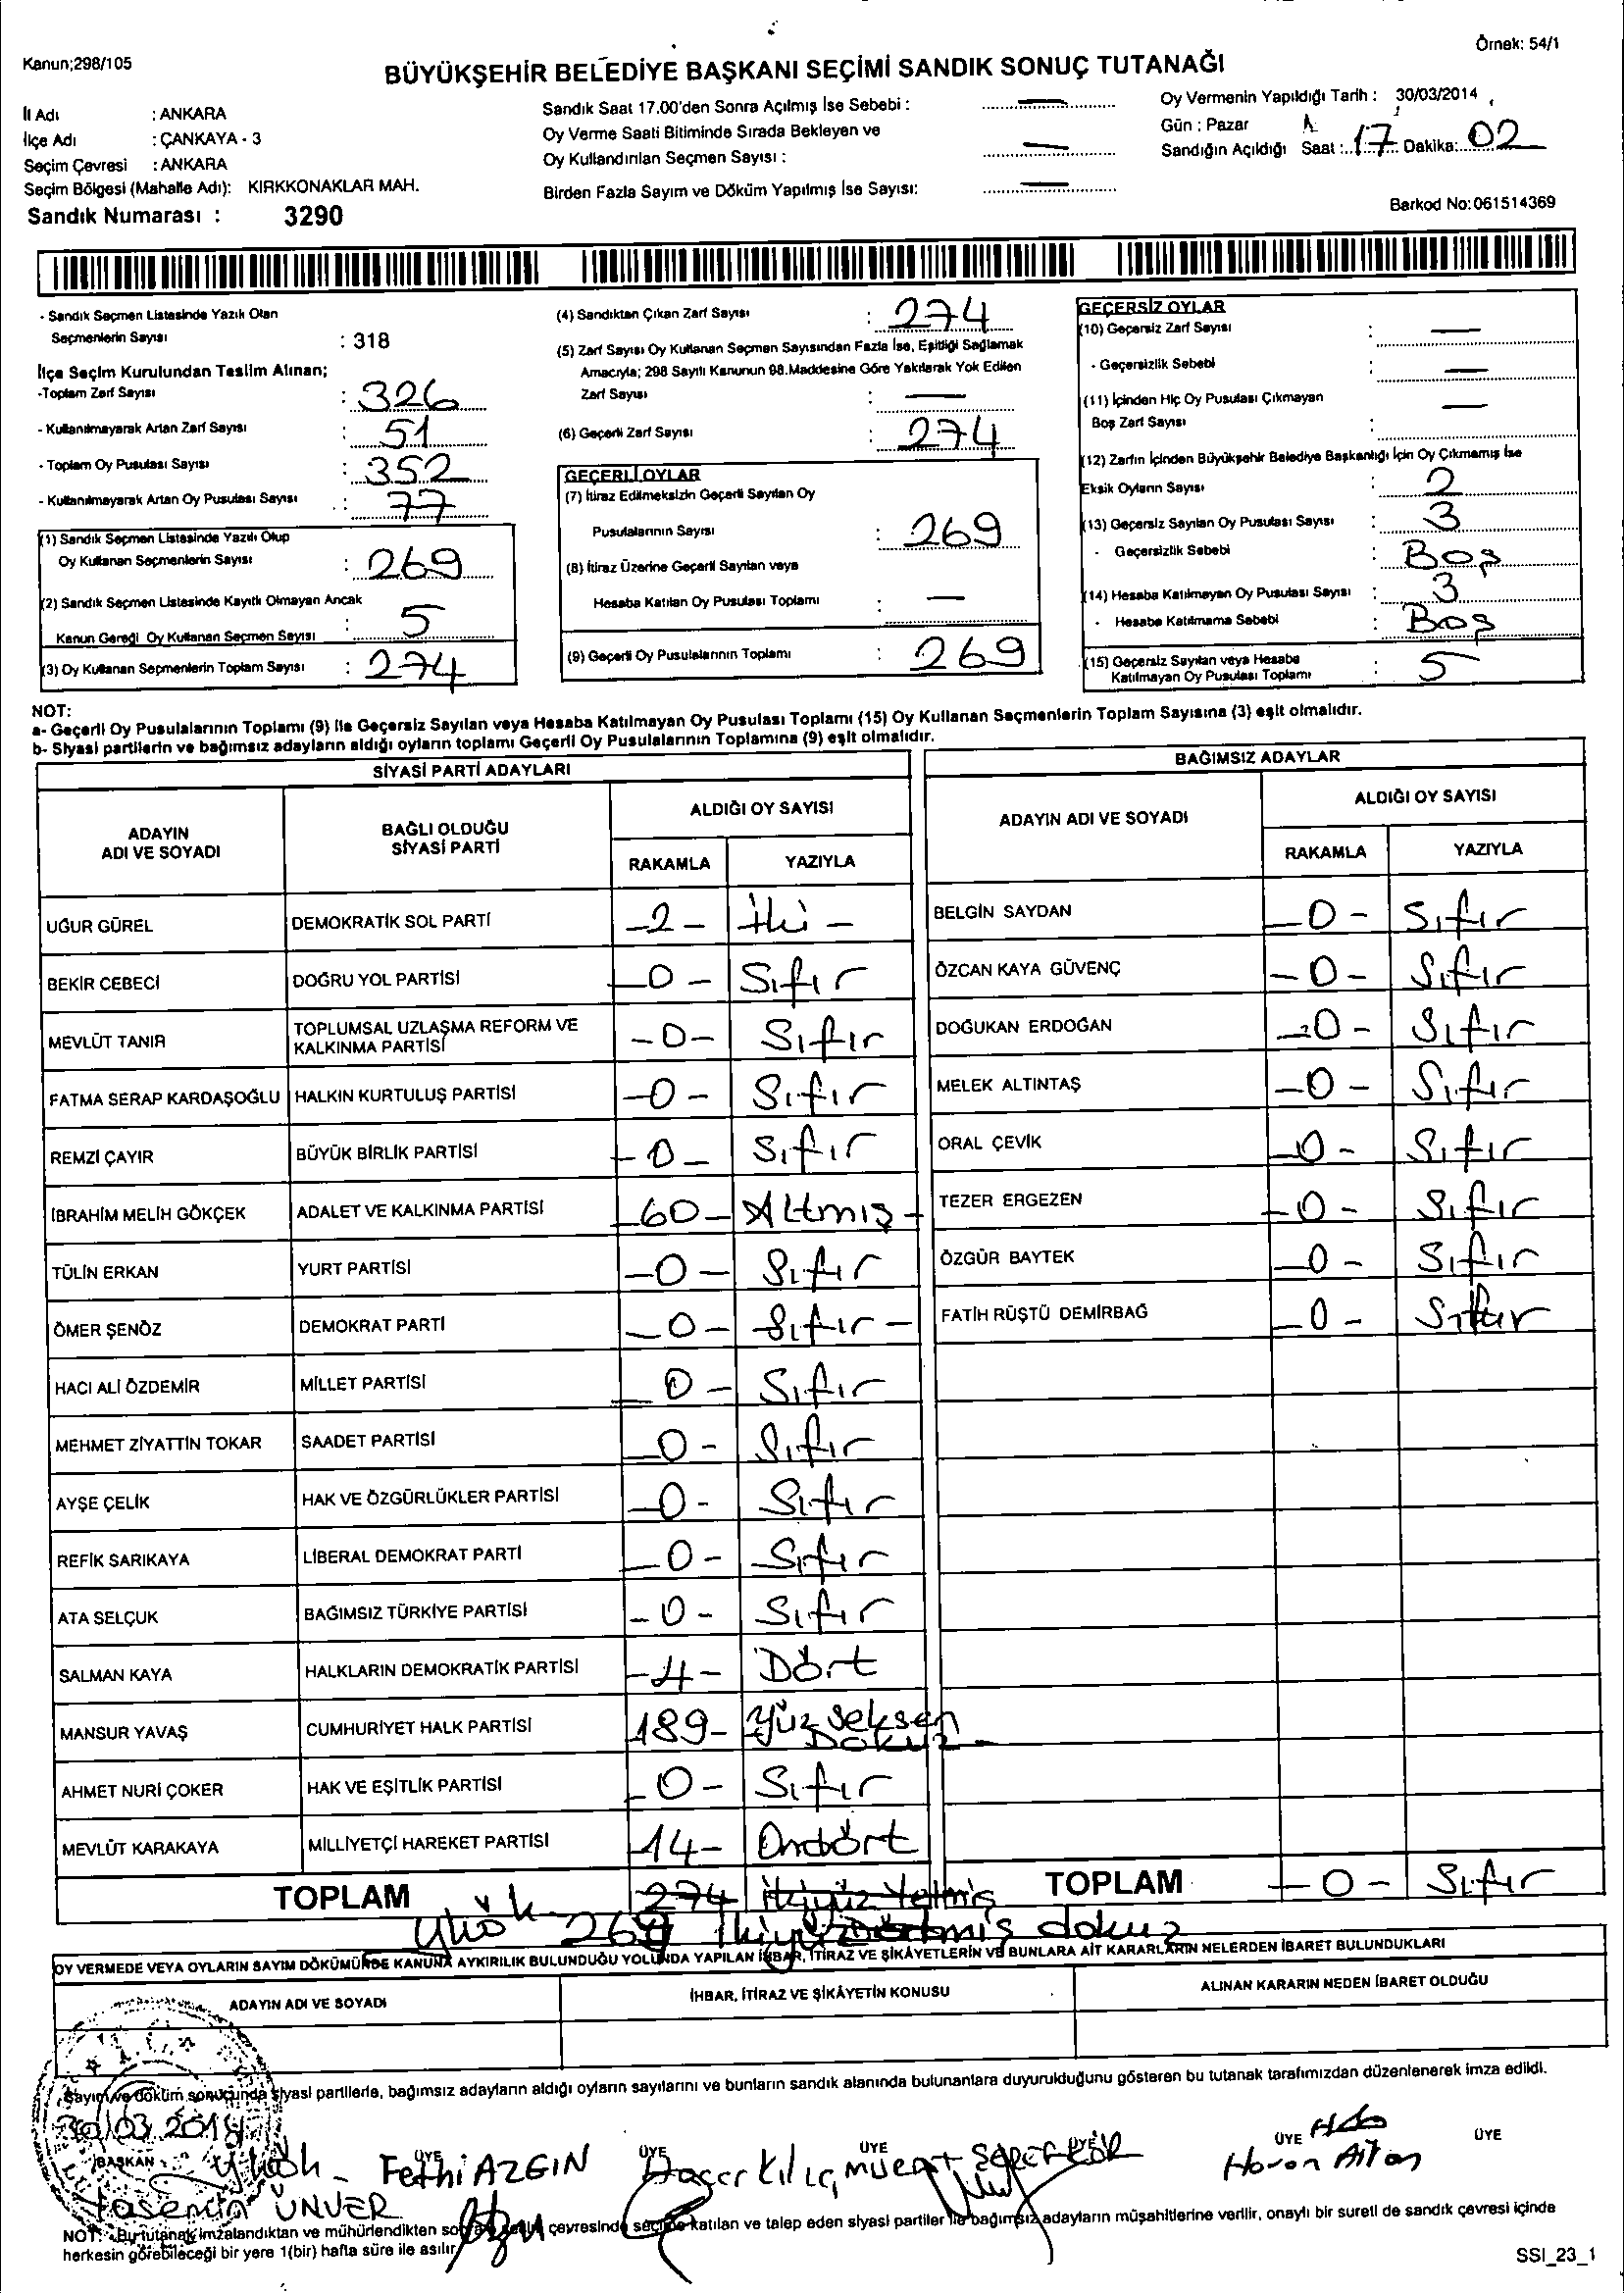 Örnek: 54/1
Kanun;298/105
BÜYÜKŞEHİR BELEDİYE BAŞKANI SEÇİMİ SANDIK SONUÇ TUTANAĞI
İl Adı : ANKARA
İlçe Adı : ÇANKAYA - 3
Seçim Çevresi : ANKARA
Seçim Bölgesi (Mahalle Adı): KIRKKONAKLAR MAH.
Sandık Numarası : 3290
Sandık Saat 17.00'den Sonra Açılmış İse Sebebi : —
Oy Verme Saati Bitiminde Sırada Bekleyen ve
Oy Kullandırılan Seçmen Sayısı : —
Birden Fazla Sayım ve Döküm Yapılmış İse Sayısı: —
Oy Vermenin Yapıldığı Tarih : 30/03/2014
Gün : Pazar
Sandığın Açıldığı Saat : 17 Dakika: 02
Barkod No:061514369
- Sandık Seçmen Listesinde Yazılı Olan
Seçmenlerin Sayısı : 318
İlçe Seçim Kurulundan Teslim Alınan;
-Toplam Zarf Sayısı : 326
- Kullanılmayarak Artan Zarf Sayısı : 51
- Toplam Oy Pusulası Sayısı : 352
- Kullanılmayarak Artan Oy Pusulası Sayısı : 77
(1) Sandık Seçmen Listesinde Yazılı Olup
Oy Kullanan Seçmenlerin Sayısı : 269
(2) Sandık Seçmen Listesinde Kayıtlı Olmayan Ancak
Kanun Gereği Oy Kullanan Seçmen Sayısı : 5
(3) Oy Kullanan Seçmenlerin Toplam Sayısı : 274
(4) Sandıktan Çıkan Zarf Sayısı : 274
(5) Zarf Sayısı Oy Kullanan Seçmen Sayısından Fazla İse, Eşitliği Sağlamak
Amacıyla; 298 Sayılı Kanunun 98.Maddesine Göre Yakılarak Yok Edilen
Zarf Sayısı : —
(6) Geçerli Zarf Sayısı : 274
GEÇERLİ OYLAR
(7) İtiraz Edilmeksizin Geçerli Sayılan Oy
Pusulalarının Sayısı : 269
(8) İtiraz Üzerine Geçerli Sayılan veya
Hesaba Katılan Oy Pusulası Toplamı : —
(9) Geçerli Oy Pusulalarının Toplamı : 269
GEÇERSİZ OYLAR
(10) Geçersiz Zarf Sayısı : —
- Geçersizlik Sebebi : —
(11) İçinden Hiç Oy Pusulası Çıkmayan
Boş Zarf Sayısı : —
(12) Zarfın İçinden Büyükşehir Belediye Başkanlığı İçin Oy Çıkmamış İse
Eksik Oyların Sayısı : 2
(13) Geçersiz Sayılan Oy Pusulası Sayısı : 3
- Geçersizlik Sebebi : Boş
(14) Hesaba Katılmayan Oy Pusulası Sayısı : 3
- Hesaba Katılmama Sebebi : Boş
(15) Geçersiz Sayılan veya Hesaba
Katılmayan Oy Pusulası Toplamı : 5
NOT:
a- Geçerli Oy Pusulalarının Toplamı (9) ile Geçersiz Sayılan veya Hesaba Katılmayan Oy Pusulası Toplamı (15) Oy Kullanan Seçmenlerin Toplam Sayısına (3) eşit olmalıdır.
b- Siyasi partilerin ve bağımsız adayların aldığı oyların toplamı Geçerli Oy Pusulalarının Toplamına (9) eşit olmalıdır.
SİYASİ PARTİ ADAYLARI
ADAYIN ADI VE SOYADI
BAĞLI OLDUĞU SİYASİ PARTİ
ALDIĞI OY SAYISI
RAKAMLA YAZIYLA
UĞUR GÜREL DEMOKRATİK SOL PARTİ -2- İki -
BEKİR CEBECİ DOĞRU YOL PARTİSİ -0- Sıfır
MEVLÜT TANIR TOPLUMSAL UZLAŞMA REFORM VE KALKINMA PARTİSİ -0- Sıfır
FATMA SERAP KARDAŞOĞLU HALKIN KURTULUŞ PARTİSİ -0- Sıfır
REMZİ ÇAYIR BÜYÜK BİRLİK PARTİSİ -0- Sıfır
İBRAHİM MELİH GÖKÇEK ADALET VE KALKINMA PARTİSİ -60- Altmış -
TÜLİN ERKAN YURT PARTİSİ -0- Sıfır
ÖMER ŞENÖZ DEMOKRAT PARTİ -0- Sıfır -
HACI ALİ ÖZDEMİR MİLLET PARTİSİ -0- Sıfır
MEHMET ZİYATTİN TOKAR SAADET PARTİSİ -0- Sıfır
AYŞE ÇELİK HAK VE ÖZGÜRLÜKLER PARTİSİ -0- Sıfır
REFİK SARIKAYA LİBERAL DEMOKRAT PARTİ -0- Sıfır
ATA SELÇUK BAĞIMSIZ TÜRKİYE PARTİSİ -0- Sıfır
SALMAN KAYA HALKLARIN DEMOKRATİK PARTİSİ -4- Dört
MANSUR YAVAŞ CUMHURİYET HALK PARTİSİ 189- Yüz seksen Dokuz -
AHMET NURİ ÇOKER HAK VE EŞİTLİK PARTİSİ -0- Sıfır
MEVLÜT KARAKAYA MİLLİYETÇİ HAREKET PARTİSİ 14- Ondört
TOPLAM 274 İkiyüz Yetmiş
269 İkiyüz dokuz
BAĞIMSIZ ADAYLAR
ADAYIN ADI VE SOYADI
ALDIĞI OY SAYISI
RAKAMLA YAZIYLA
BELGİN SAYDAN -0- Sıfır
ÖZCAN KAYA GÜVENÇ -0- Sıfır
DOĞUKAN ERDOĞAN -0- Sıfır
MELEK ALTINTAŞ -0- Sıfır
ORAL ÇEVİK -0- Sıfır
TEZER ERGEZEN -0- Sıfır
ÖZGÜR BAYTEK -0- Sıfır
FATİH RÜŞTÜ DEMİRBAĞ -0- Sıfır
TOPLAM -0- Sıfır
OY VERMEDE VEYA OYLARIN SAYIM DÖKÜMÜNDE KANUNA AYKIRILIK BULUNDUĞU YOLUNDA YAPILAN İHBAR, İTİRAZ VE ŞİKÂYETLERİN VE BUNLARA AİT KARARLARIN NELERDEN İBARET BULUNDUKLARI
ADAYIN ADI VE SOYADI
İHBAR, İTİRAZ VE ŞİKÂYETİN KONUSU
ALINAN KARARIN NEDEN İBARET OLDUĞU
Sayım ve döküm sonucunda siyasi partilerle, bağımsız adayların aldığı oyların sayılarını ve bunların sandık alanında bulunanlara duyurulduğunu gösteren bu tutanak tarafımızdan düzenlenerek imza edildi.
30/03/2014
BAŞKAN ÜYE ÜYE ÜYE ÜYE ÜYE ÜYE
Yasemin ÜNVER
Fethi AZGIN
Hacer Kılıç
Harun Altan
NOT: Bu tutanak imzalandıktan ve mühürlendikten sonra çevresinde seçime katılan ve talep eden siyasi partiler ile bağımsız adayların müşahitlerine verilir, onaylı bir sureti de sandık çevresi içinde
herkesin görebileceği bir yere 1(bir) hafta süre ile asılır.
SSI_23_1